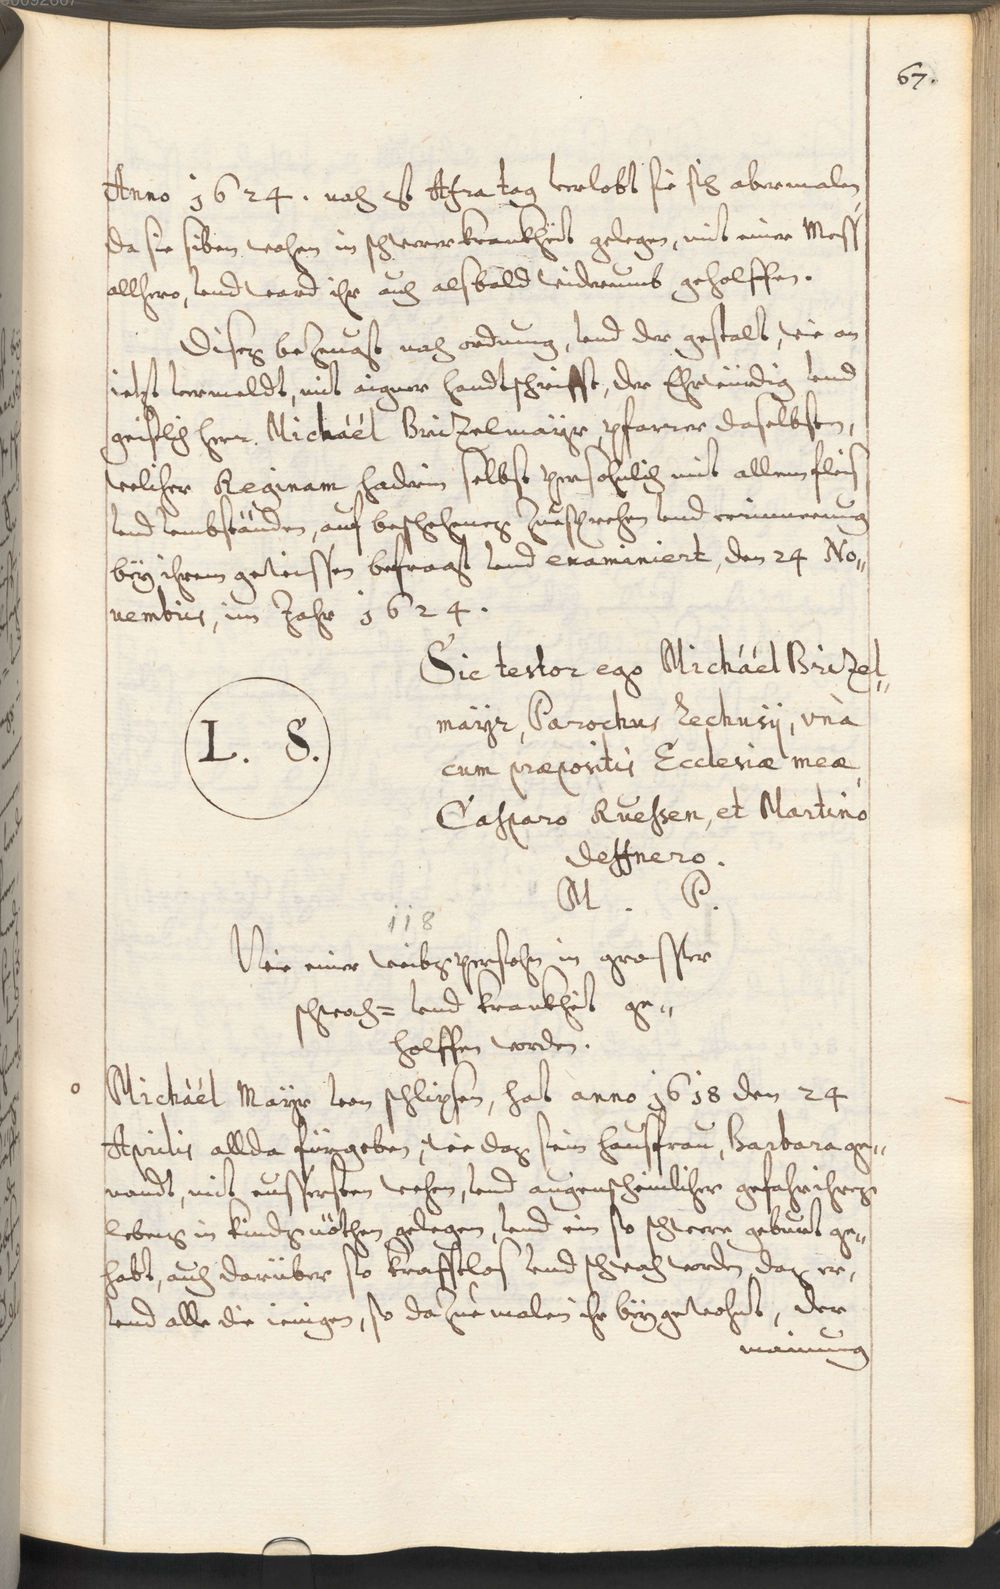 67.
Anno 1624. nach St Afra tag verlobt sie sich abermalen,
da sie siben wochen in schwerer kranckheit gelegen, mit einer Mess
allhero, vnd ward ihr auch alsbald widerumb geholffen.
Dises bezeugt nach ordnung, vnd der gestalt, wie an
ietzt vermeldt, mit aigner handtschrifft, der Ehrwürdig vnd
geistlich herr Michaél Brizelmaÿr, pfarrer daselbsten,
welicher Reginam Hadrin selbst persohnlich mit allem fleis
vnd vmbständen, auf beschehenes zuesprechen vnd erinnerung
beÿ ihrem gewissen befragt vnd examiniert, den 24 No„
uembris, im Jahr 1624.
Sic testor ego Michaél Brizel„
maÿr, Parochus Zechusij, vnà
cum præpositis Ecclesiæ meæ,
Casparo Ruessen, et Martino
Deffnero.
M. P.
L. S.
118
Wie einer weibspersohn in grosser
schwach= vnd kranckheit ge„
holffen worden.
Michaél Maÿr von schlipsen, hat anno 1618 den 24
Aprilis allda fürgeben, wie das sein hausfrau, Barbara ge„
nandt, mit eussersten wehen, vnd augenscheinlicher gefahr ihres
lebens in kindsnöthen gelegen, vnd ein so schwere geburt ge„
habt, auch darüber so krafftlos vnd schwach worden, das er,
vnd alle die ienigen, so dazuemalen ihr beÿgewohnt, der
mainung